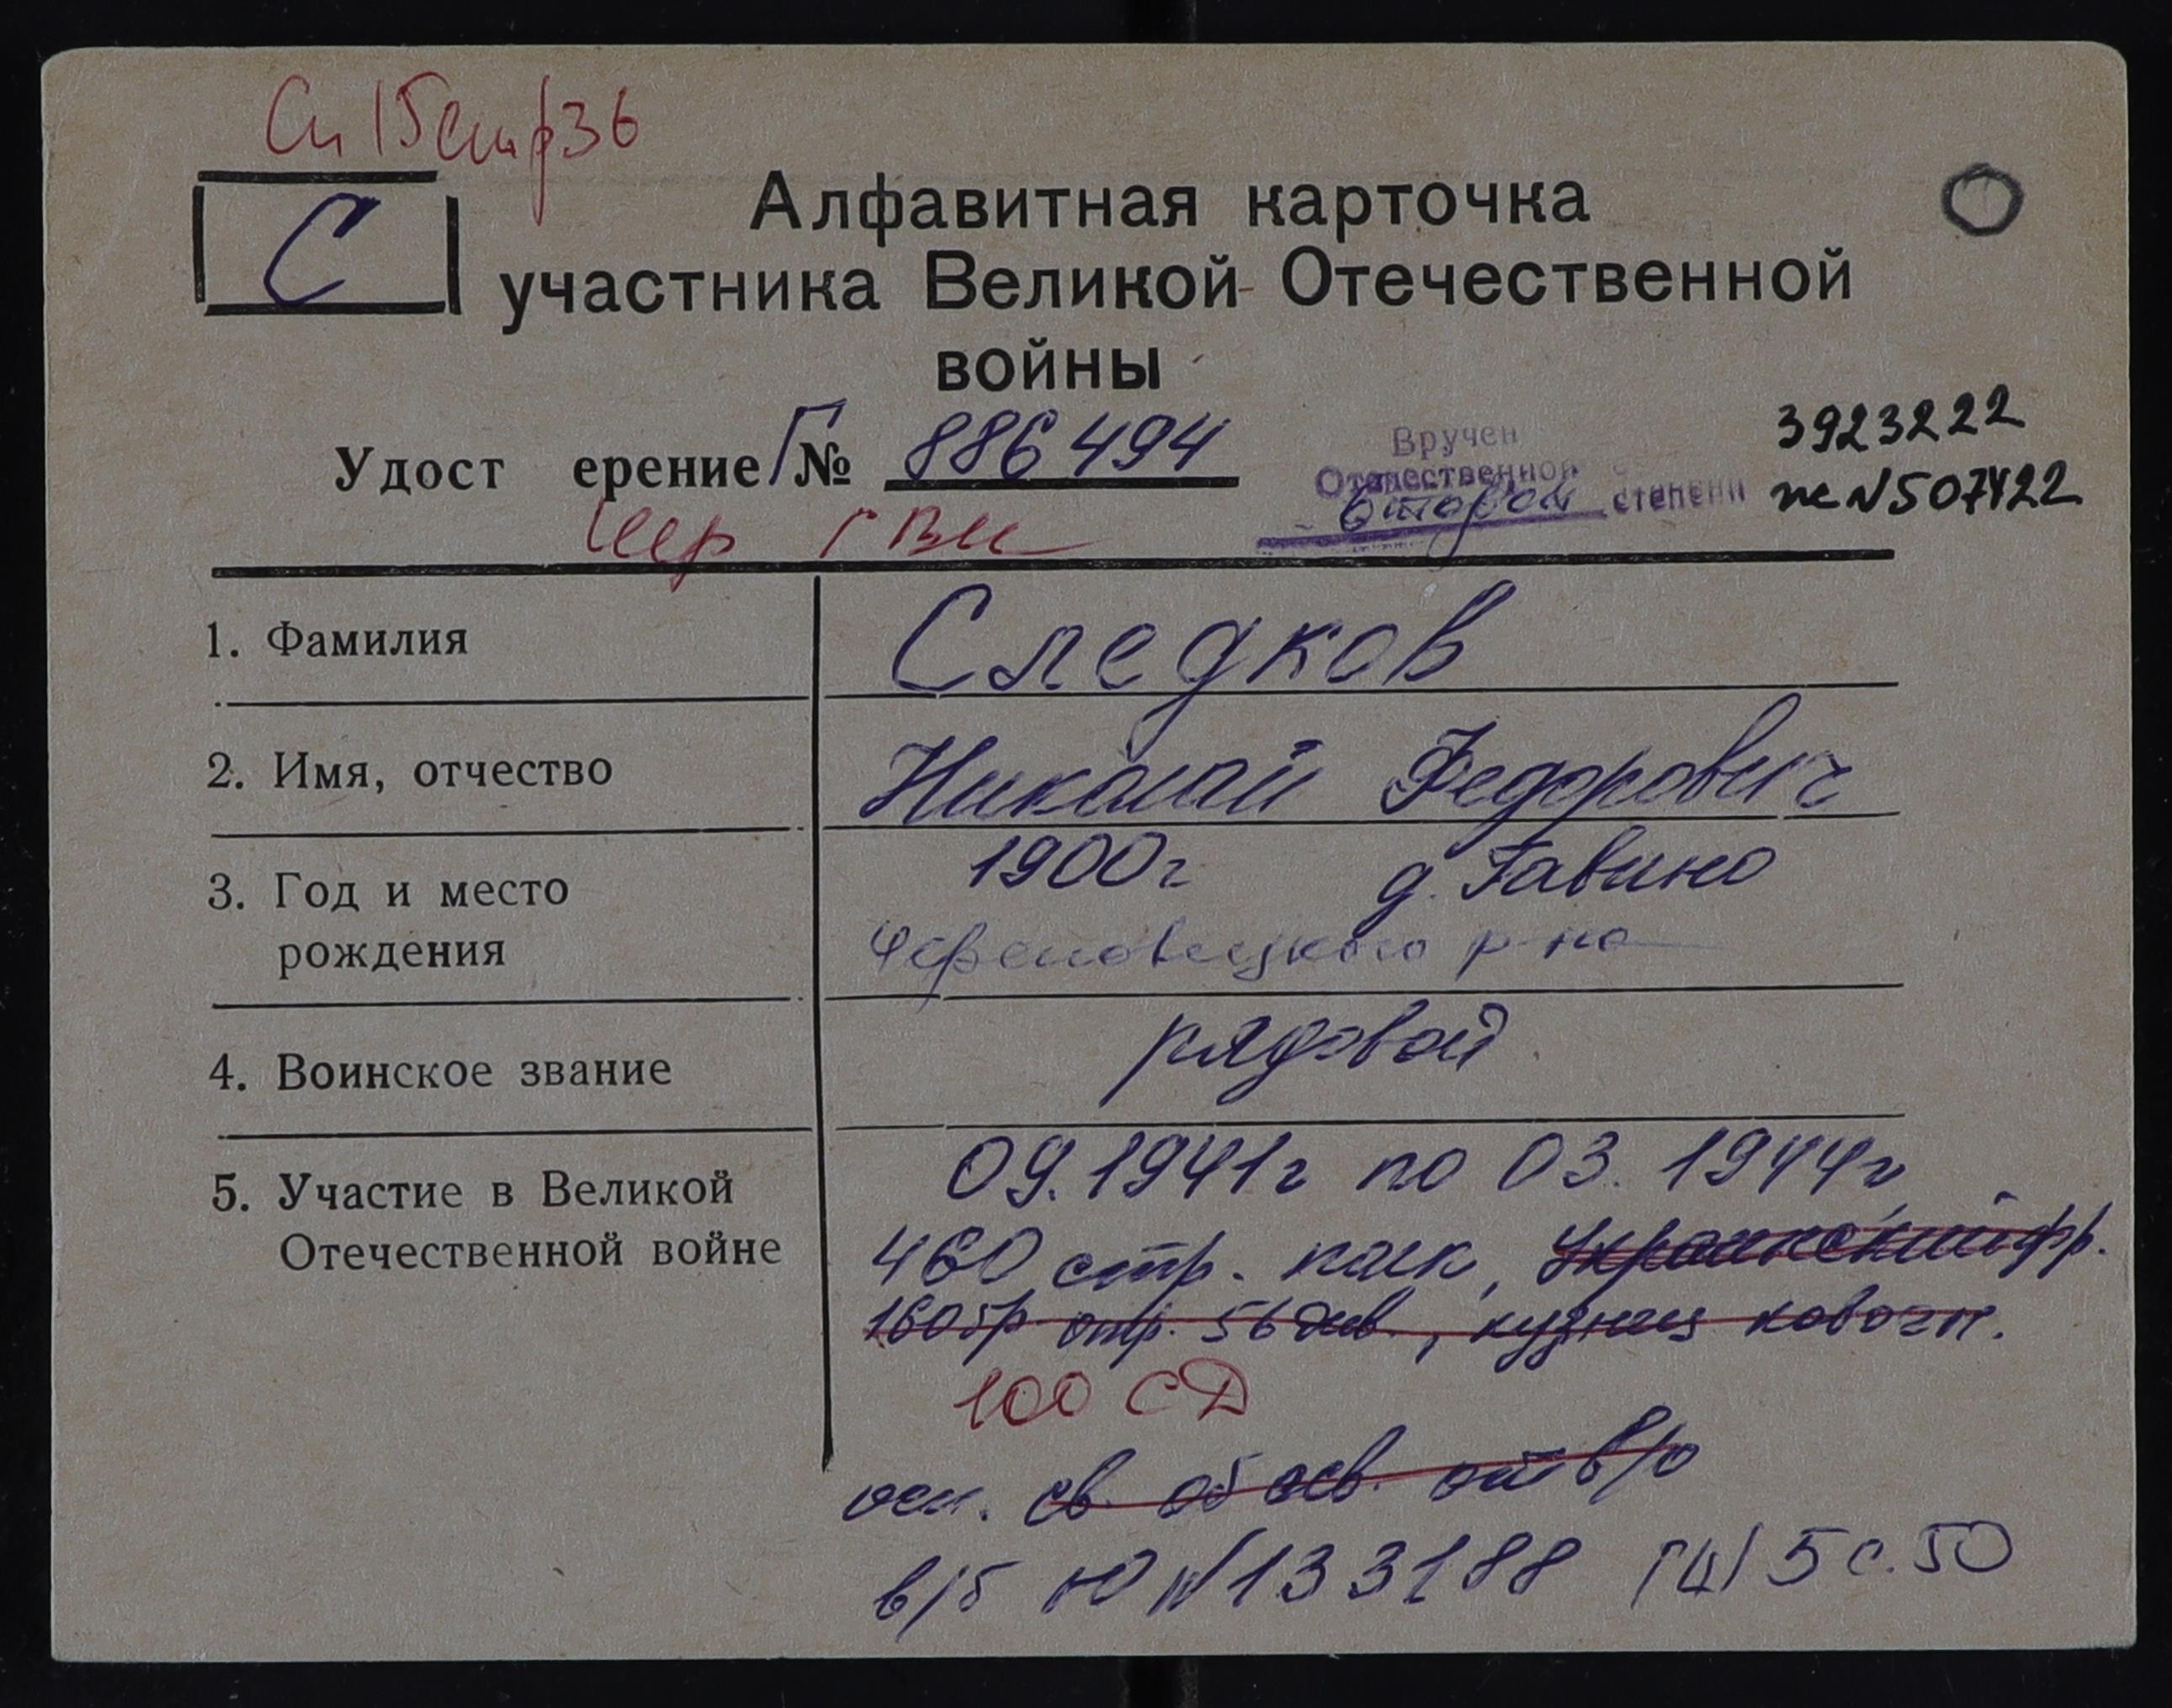 Сп 15 стр 36
С
Алфавитная карточка
участника Великой Отечественной
войны
Удост ерение Г № 886494
Вручен
Отечественной
второй степени
3923222
№507422
Чер ГВК
1. Фамилия
Следков
2. Имя, отчество
Николай Федорович
3. Год и место
рождения
1900г д. Гавино
Череповецкого р-на
4. Воинское звание
рядовой
5. Участие в Великой
Отечественной войне
09.1941г по 03.1944г
460 стр. полк, Украинский фр.
160 стр. 56 див., кузнец ковочн.
100 СД
осн. св. об осв. от в/о
в/б Ю №133188 Г4/5 с.50